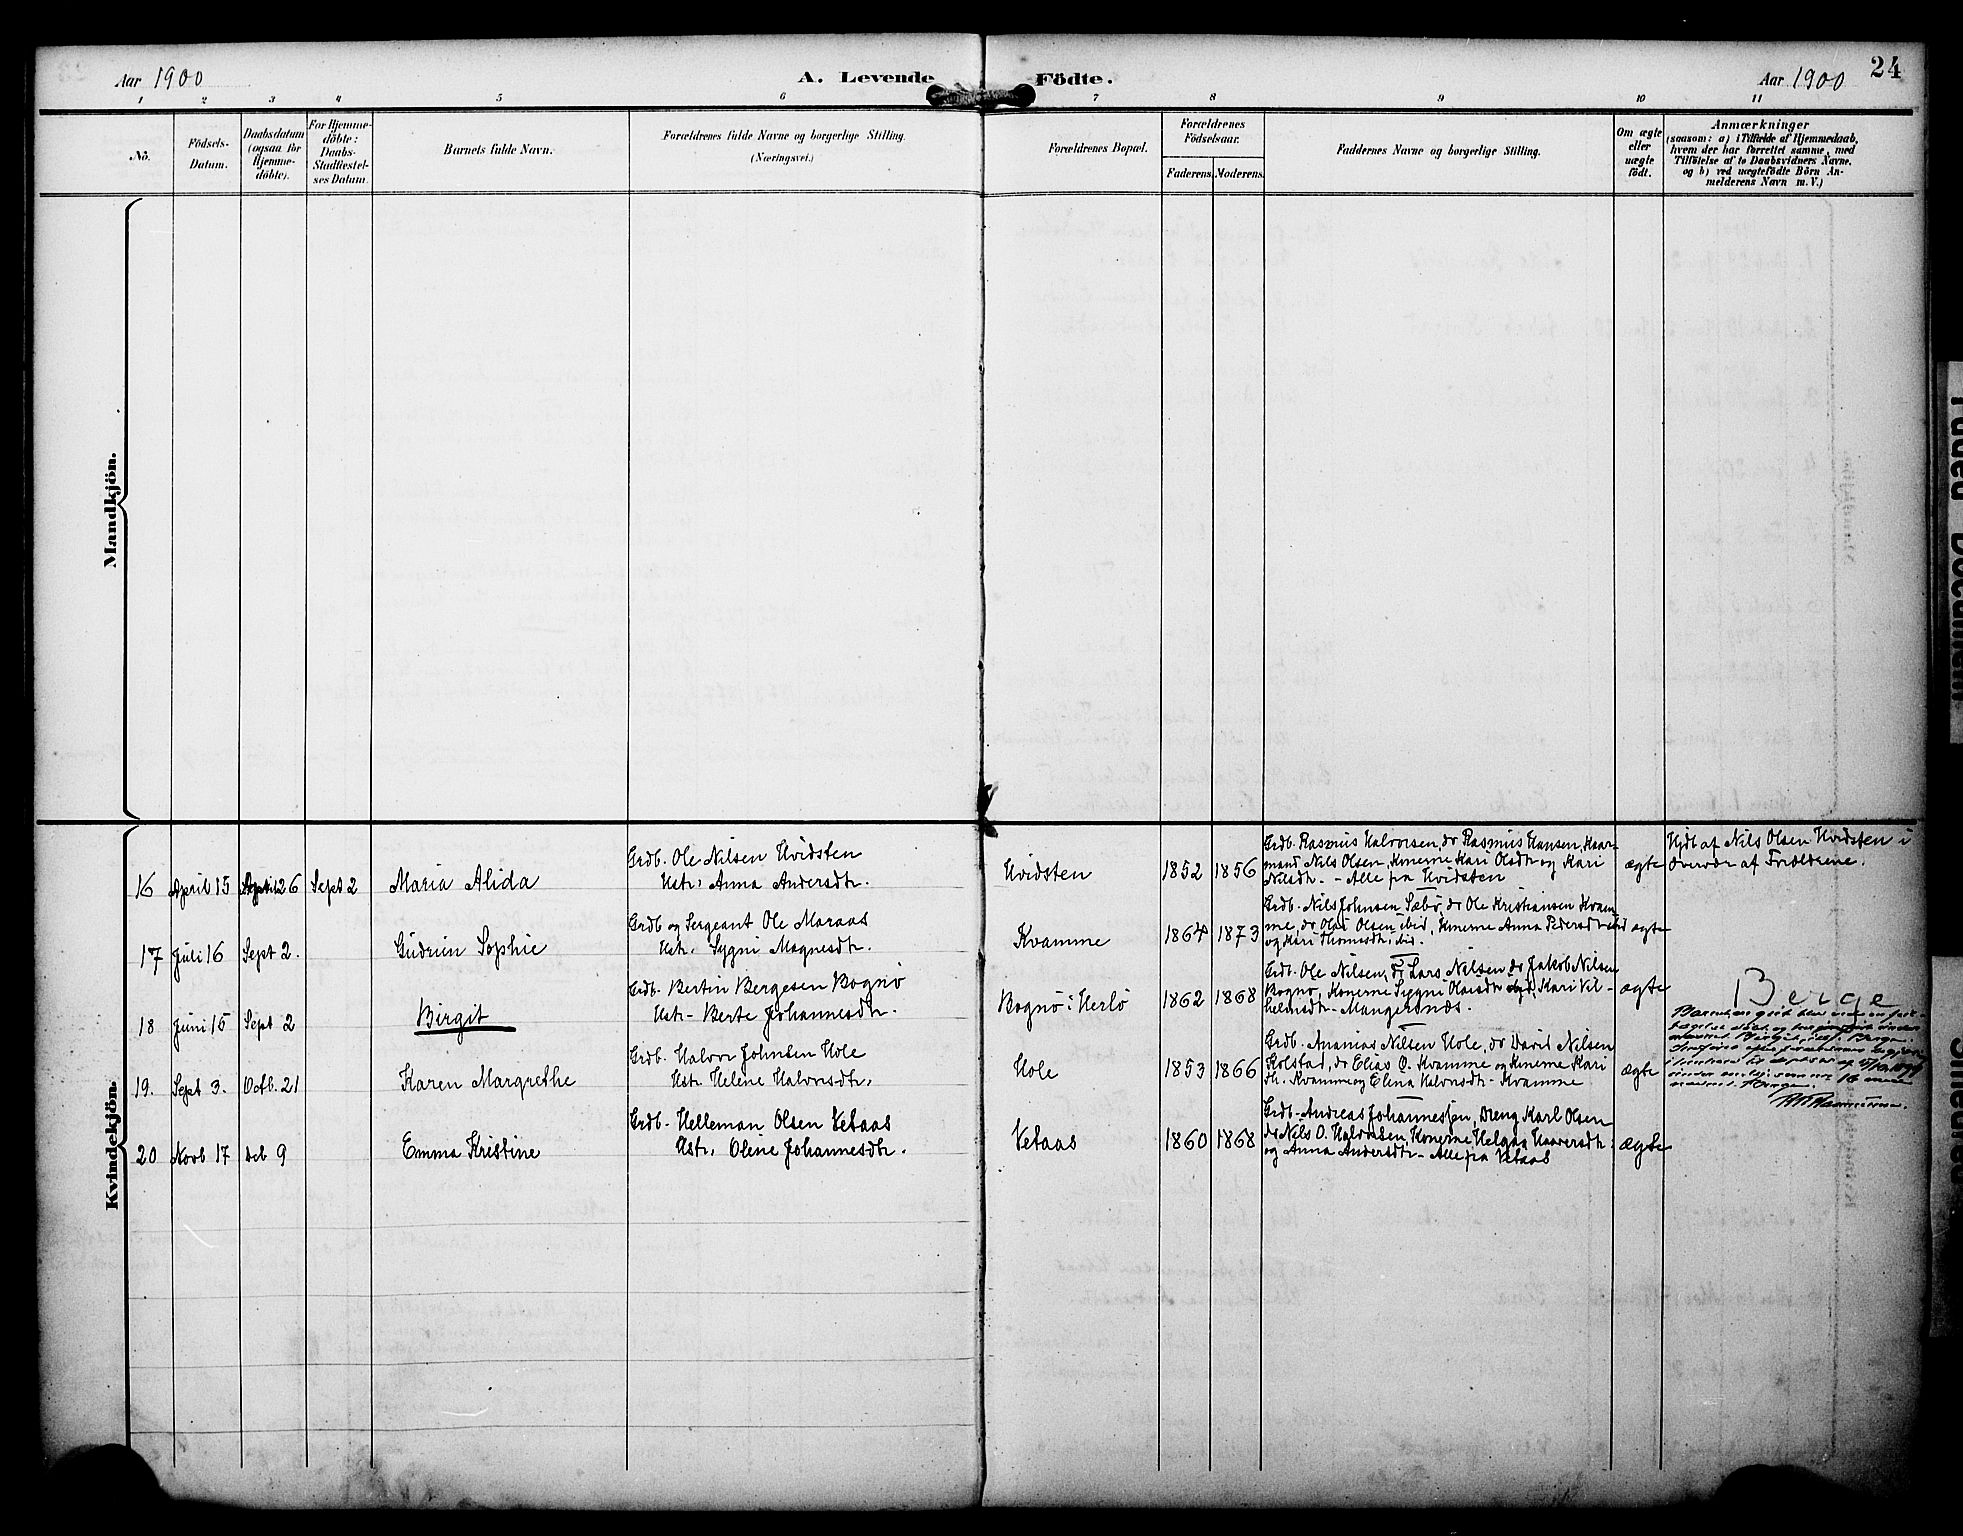 Aar 1900
A. Levende Födte.
Aar 1900
24
1 2 3 4 5 6 7 8 9 10 11
No.
Födsels-
Datum.
Daabsdatum
(ogsaa for
Hjemme-
döbte).
For Hjemme-
döbte:
Daabs-
Stadfæstel-
ses Datum.
Barnets fulde Navn.
Forældrenes fulde Navne og borgerlige Stilling.
(Næringsvei.)
Forældrenes Bopæl.
Forældrenes
Födselsaar.
Faderens.
Moderens.
Faddernes Navne og borgerlige Stilling.
Om ægte
eller
uægte
födt.
Anmærkninger
(saasom: a) i Tilfælde af Hjemmedaab,
hvem der har forrettet samme, med
Tilföielse af to Daabsvidners Navne,
og b) ved uægtefödte Börn An-
melderens Navn m. V.)
Mandkjön.
Kvindekjön.
16 April 15 April 26 Sept 2 Maria Alida
Grdb. Ole Nilsen Hvidsten
Hstr. Anna Andersdtr.
Hvidsten 1852 1856
Grdb. Rasmus Halvorsen, do Rasmus Hansen, Kaar-
mand Nils Olsen, Konerne Kari Olsdtr og Kari
Nilsdtr. - Alle fra Hvidsten
ægte
Hjdb af Nils Olsen Hvidsten i
Overvær af Forældrene.
17 Juli 16 Sept 2. Gudrun Sophie
Grdb og Sergeant Ole Maraas
Hstr. Sygni Magnesdtr.
Kvamme 1864 1873
Grdb. Nils Johnsen Sæbö, do Ole Kristiansen Kvam-
me, do Olai Olsen ibid, Konerne Anna Pedersdtr ibid
og Kari Thomsdtr. ibid.
ægte
18 Juni 15 Sept 2 Birgit
Grdb. Bertin Bergesen Bognö
Hstr- Berte Johannesdtr.
Bognö i Herlö 1862 1868
Grdb. Ole Nilsen, do Lars Nilsen do Jakob Nilsen
Bognö, Konerne Sygni Olaisdtr ibid, Kari Vil-
helmsdtr- Mangersnæs.
ægte
Berge
19. Sept 3. Octb. 21 Karen Margrethe
Grdb. Halvor Johnsen Hole
Hstr. Helene Halvorsdtr.
Hole 1853 1866
Grdb. Ananias Nilsen Hole, do David Nilsen
Kolstad, do Elias O. Kvamme og Konerne Kari
dtr. Kvamme og Elina Halvorsdtr- Kvamme
ægte
20 Novb 17 Dcb 9 Emma Kristine
Grdb. Helleman Olsen Vetaas
Hstr. Oline Johannesdtr.
Vetaas 1860 1868
Grdb- Andreas Johannessen, Dreng Karl Olsen
do Nils O. Halvorsen, Konerne Helga Haaversdtr
og Anna Andersdtr- Alle fra Vetaas
ægte